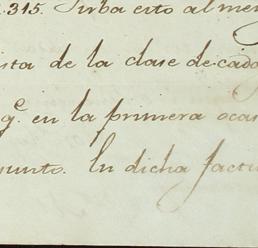 2.315. Sirba esto al men
ista de la clase de cada
q.e en la primera ocas
punto. En dicha factu